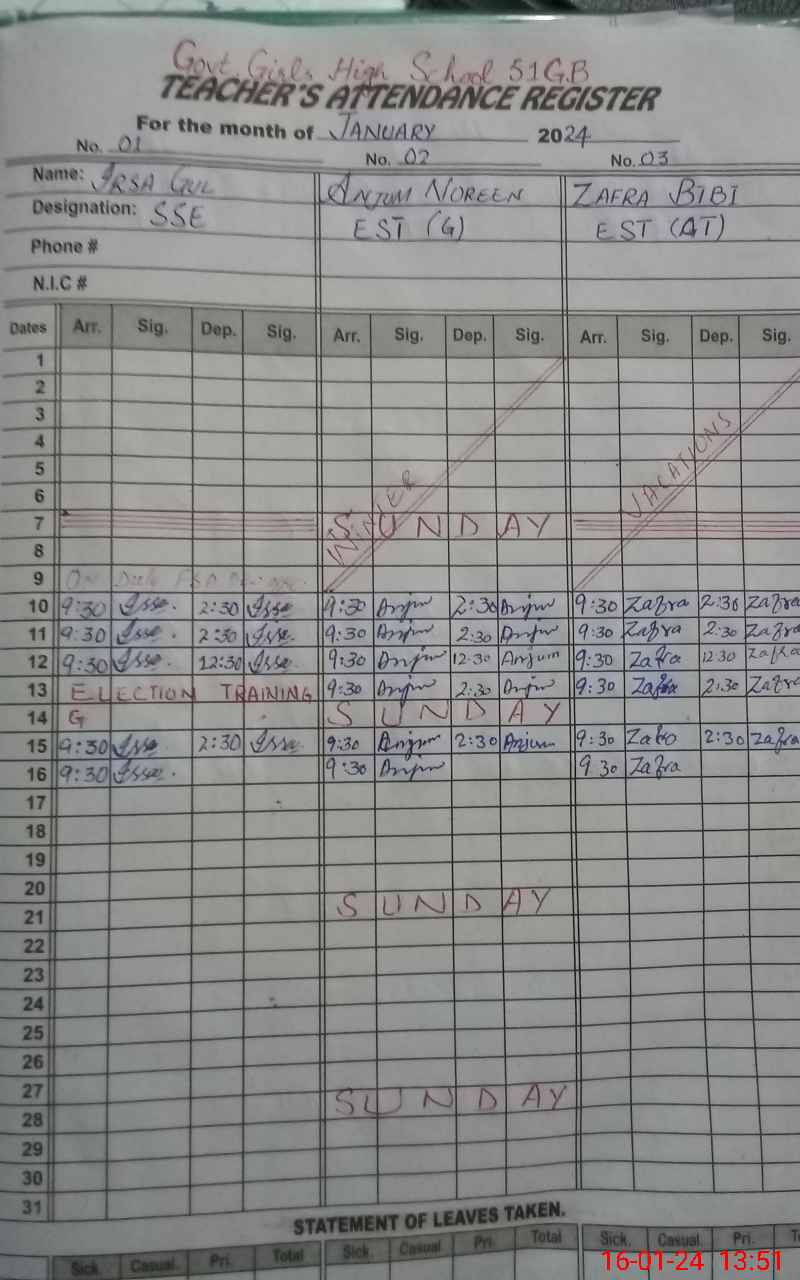 Govt Girls High School 51GB
TEACHER'S ATTENDANCE REGISTER
For the month of JANUARY 2024
No. 01 No. 02 No. 03
Name: IRSA GUL ANJUM NOREEN ZAFRA BIBI
Designation: SSE EST (G) EST (AT)
Phone #
N.I.C #
Dates Arr. Sig. Dep. Sig. Arr. Sig. Dep. Sig. Arr. Sig. Dep. Sig.
1
2
3
4
5
6
WINTER VACATIONS
7 SUNDAY
8
9 On
10 9:30 2:30 9:30 Anjum 2:30 Anjum 9:30 Zafra 2:30 Zafra
11 9:30 2:30 9:30 Anjum 2:30 Anjum 9:30 Zafra 2:30 Zafra
12 9:30 12:30 9:30 Anjum 12:30 Anjum 9:30 Zafra 12:30 Zafra
13 ELECTION TRAINING 9:30 Anjum 2:30 Anjum 9:30 Zafra 2:30 Zafra
14 G SUNDAY
15 9:30 2:30 9:30 Anjum 2:30 Anjum 9:30 Zafra 2:30 Zafra
16 9:30 9:30 Anjum 9:30 Zafra
17
18
19
20
21 SUNDAY
22
23
24
25
26
27
28 SUNDAY
29
30
31
STATEMENT OF LEAVES TAKEN.
Sick. Casual. Pri. Total Sick. Casual Pri. Total Sick. Casual. Pri.
16-01-24 13:51